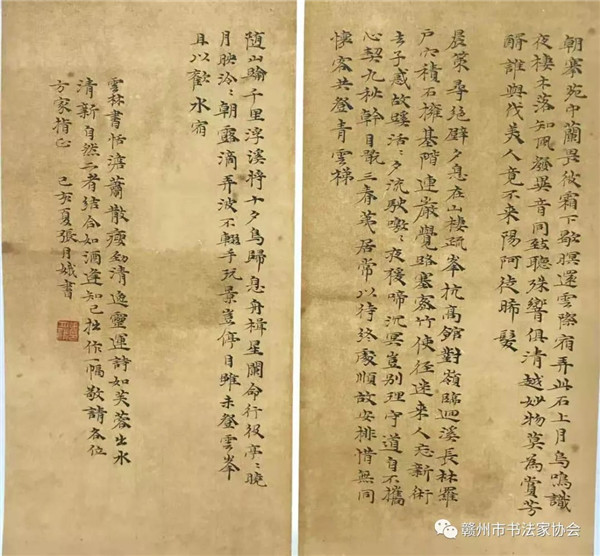 朝搴苑中蘭畏彼霜下歇暝還雲際宿弄此石上月鳥鳴識
夜棲木落知風發異音同致聽殊響俱清越妙物莫為賞芳
醑誰與伐美人竟不來陽阿徒晞髮
晨策尋絕壁夕息在山棲疏峯抗高館對嶺臨迴溪長林羅
戶穴積石擁基階連巖覺路塞密竹使徑迷來人忘新術
去子惑故蹊活〻夕流駛噭〻夜猨啼沉冥豈別理守道自不攜
心契九秋幹目翫三春荑居常以待終處順故安排惜無同
懷客共登青雲梯
隨山踰千里浮溪將十夕鳥歸息舟楫星闌命行役亭〻曉
月映泠〻朝露滴弄波不輟手玩景豈停目雖未登雲峯
且以歡水宿
雲林書恬澹蕭散瘦勁清逸靈運詩如芙蓉出水
清新自然二者結合如酒逢知己拙作一幅敬請各位
方家指正 己亥夏張月娥書
赣州市书法家协会